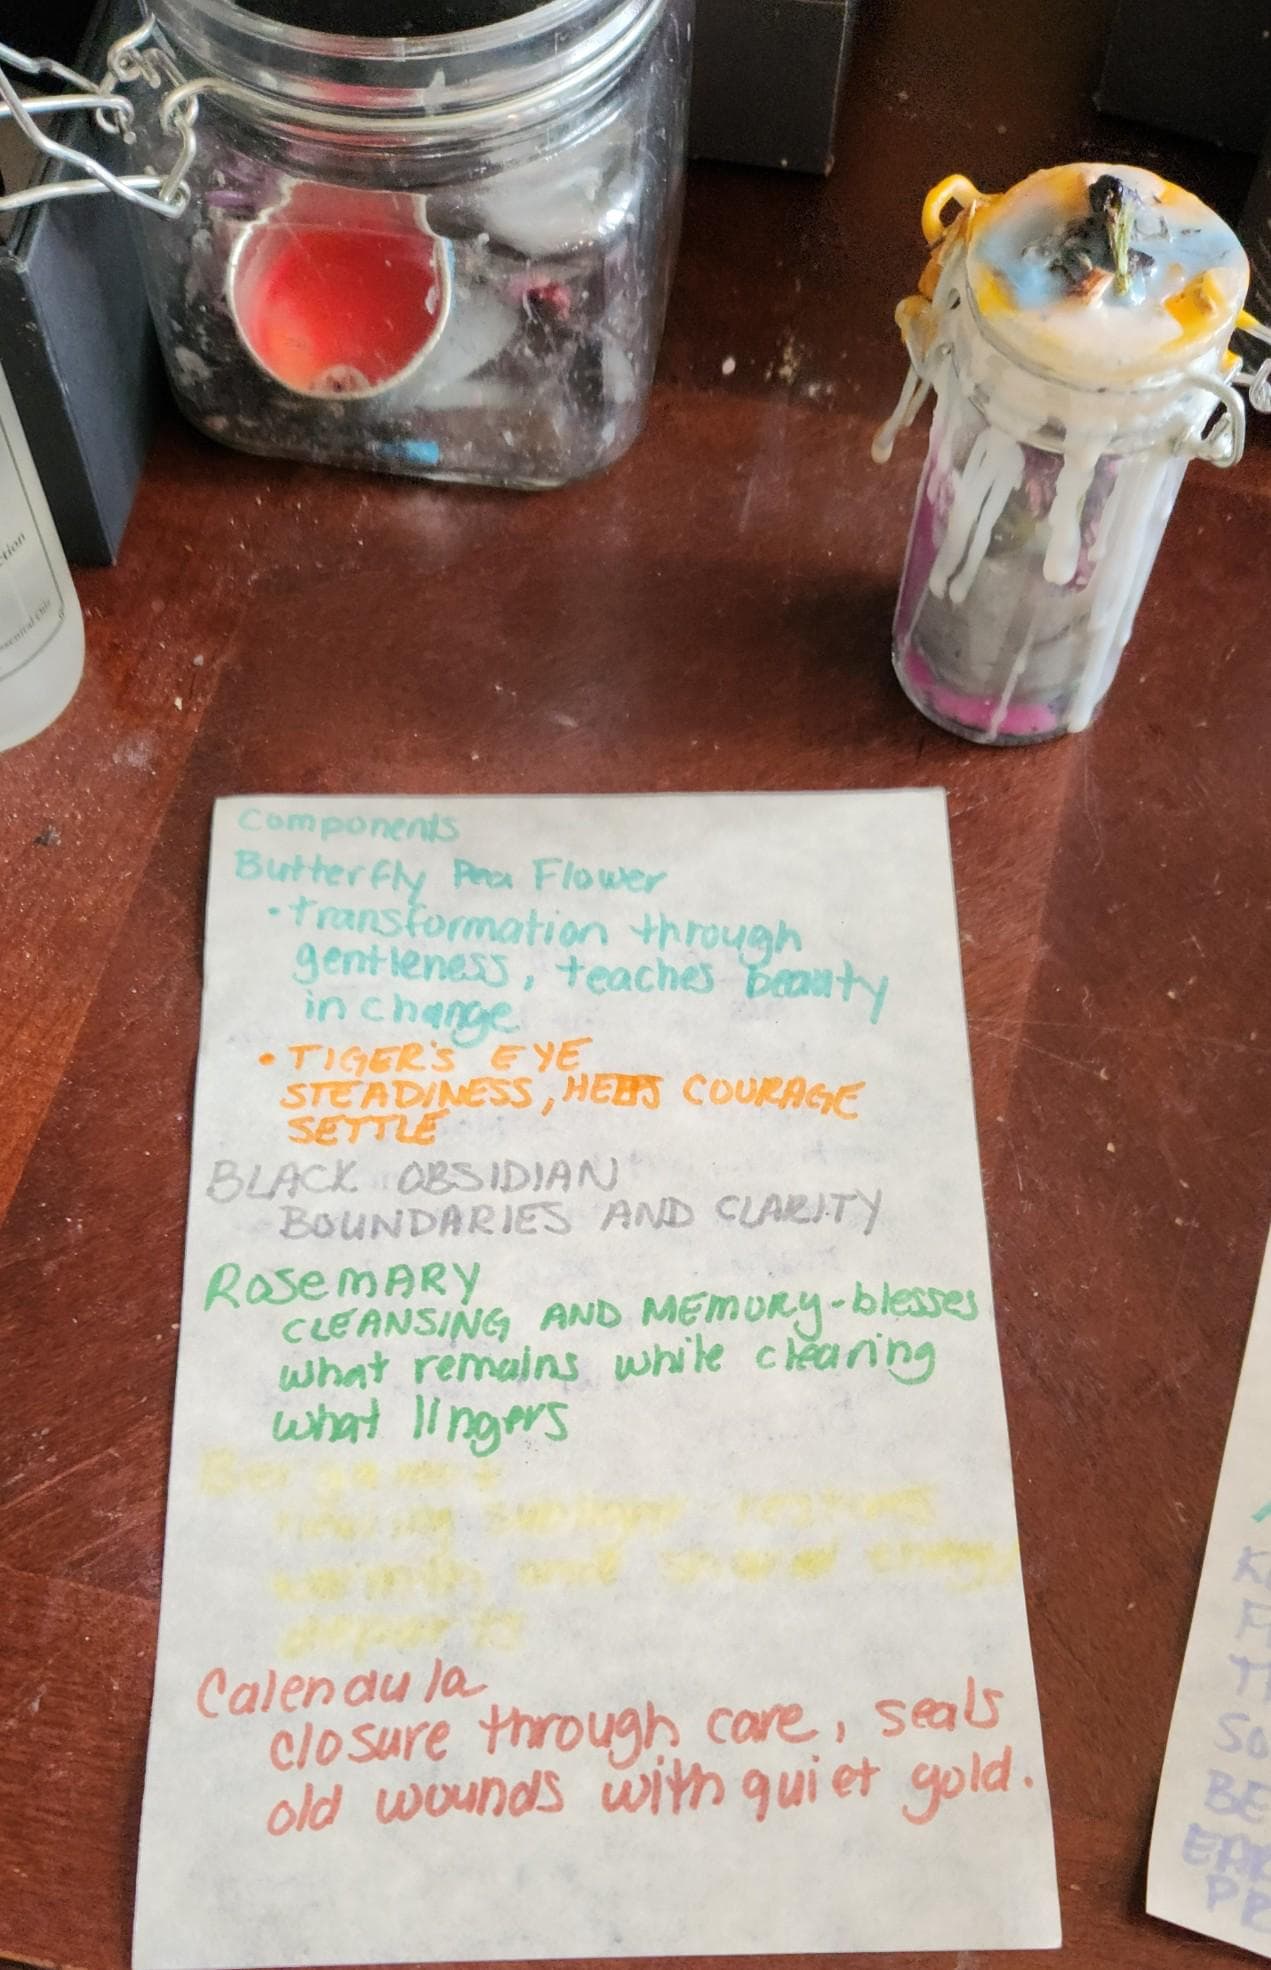 ction
Essential Oils
Components
Butterfly Pea Flower
• transformation through
gentleness, teaches beauty
in change
• TIGER'S EYE
STEADINESS, HELPS COURAGE
SETTLE
BLACK OBSIDIAN
BOUNDARIES AND CLARITY
Rosemary
CLEANSING AND MEMORY-blesses
what remains while clearing
what lingers
Bergamot
healing sunlight restores
warmth and shared energy
departs
Calendula
closure through care, seals
old wounds with quiet gold.
K
F
T
SO
BE
EAR
PR